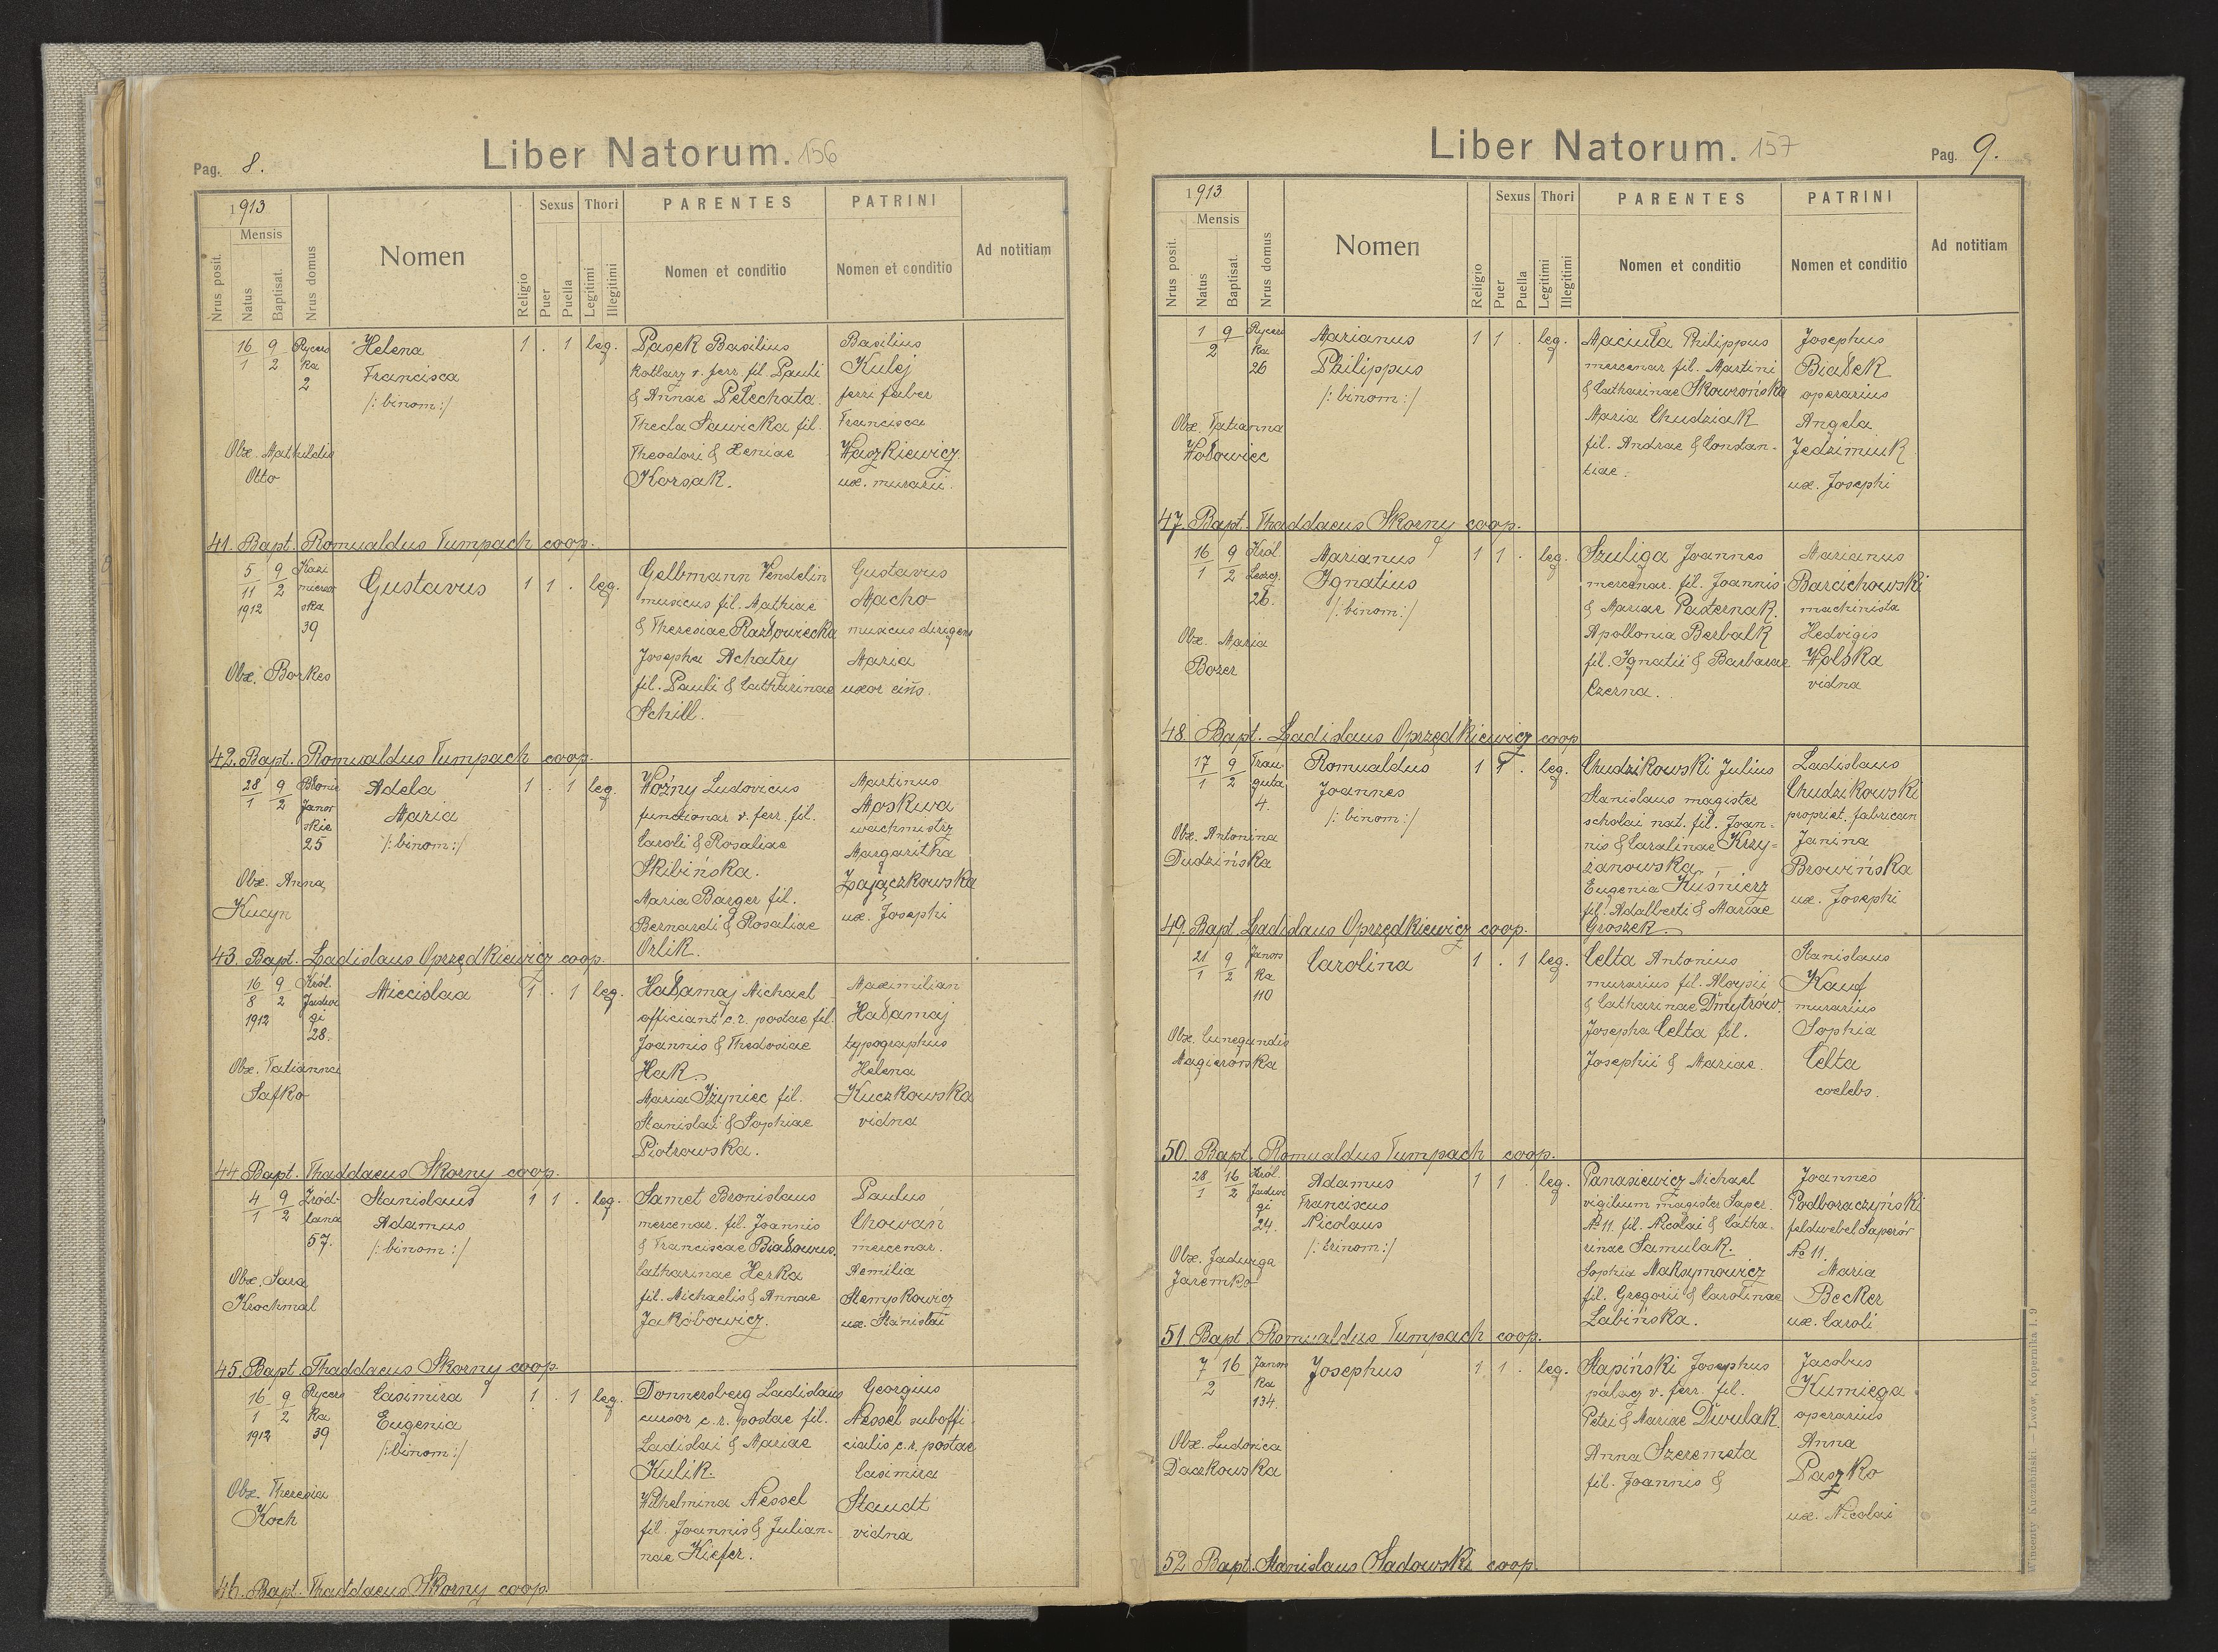 Pag. 8.
Liber Natorum. 156
1913
Mensis
Nrus posit.
Natus
Baptisat.
Nrus domus
Nomen
Religio
Sexus
Puer
Puella
Thori
Legitimi
Illegitimi
PARENTES
Nomen et conditio
PATRINI
Nomen et conditio
Ad notitiam
16/1 9/2 Rycers
ka
2
Helena
Francisca
/: binom :/
1 . 1 leg.
Pasek Basilius
kotlarz v. ferr. fil. Pauli
& Annae Pełechata.
Thecla Sawicka fil.
Theodori & Xeniae
Korsak.
Basilius
Kulej
ferri faber
Francisca
Waszkiewicz
ux. murarii.
Obx. Mathildis
Otto
41. Bapt. Romualdus Tumpach coop.
5/11 1912 9/2 Kazi
mierzow
ska
39
Gustavus
1 1 . leg.
Gelbmann Vendelin
musicus fil. Mathiae
& Theresiae Razłowiecka
Josepha Achatry
fil. Pauli & Catharinae
Schill.
Gustavus
Macho
musicus dirigens
Maria
uxor eius.
Obx. Borkes
42. Bapt. Romualdus Tumpach coop.
28/1 9/2 Błonie
Janow
skie
25
Adela
Maria
/: binom :/
1 . 1 leg.
Woźny Ludovicus
functionar. v. ferr. fil.
Caroli & Rosaliae
Skibińska.
Maria Barger fil.
Bernardi & Rosaliae
Orlik.
Martinus
Moskwa
wachmistrz
Margaritha
Zajączkowska
ux. Josephi
Obx. Anna
Kucyn
43. Bapt. Ladislaus Oprzędkiewicz coop.
16/8 1912 9/2 Król.
Jadwi
gi
28.
Miecislaa
1 . 1 leg.
Hałamaj Michael
officiant c.r. postae fil.
Joannis & Thedosiae
Hak.
Maria Iżyniec fil.
Stanislai & Sophiae
Piotrowska.
Maximilian
Hałamaj
typographus
Helena
Kuczkowska
vidna
Obx. Tatianna
Safko
44 Bapt. Thaddaeus Skorny coop.
4/1 9/2 Źród-
lana
57.
Stanislaus
Adamus
/: binom :/
1 1 . leg.
Samet Bronislaus
mercenar. fil. Joannis
& Franciscae Białowus.
Catharinae Herka
fil. Michaelis & Annae
Jakóbowicz.
Paulus
Chowań
mercenar.
Aemilia
Stempkowicz
ux. Stanislai
Obx. Sara
Krochmal
45. Bapt. Thaddaeus Skorny coop.
16/1 1912 9/2 Rycers
ka
39
Casimira
Eugenia
/: binom :/
1 . 1 leg.
Donnersberg Ladislaus
cursor c.r. postae fil.
Ladislai & Mariae
Kulik.
Wilhelmina Nessel
fil. Joannis & Julian-
nae Kiefer.
Georgius
Nessel suboffi
cialis c.r. postae
Casimira
Staudt
vidna
Obx. Theresia
Koch
46. Bapt. Thaddaeus Skorny coop.
Liber Natorum. 157
Pag. 9.
1913
Mensis
Nrus posit.
Natus
Baptisat.
Nrus domus
Nomen
Religio
Sexus
Puer
Puella
Thori
Legitimi
Illegitimi
PARENTES
Nomen et conditio
PATRINI
Nomen et conditio
Ad notitiam
1 9/2 Rycers
ka
26
Marianus
Philippus
/: binom :/
1 1 . leg.
Maciuła Philippus
mercenar fil. Martini
& Catharinae Skowrońska
Maria Chudziak
fil. Andrae & Constan-
tiae.
Josephus
Białek
operarius
Angela
Jedzimiuk
ux. Josephi
Obx. Tatianna
Wołowiec
47. Bapt. Thaddaeus Skorny coop.
16/1 9/2 Król.
Leszcz.
26.
Marianus
Ignatius
/: binom :/
1 1 . leg.
Szuliga Joannes
mercenar. fil. Joannis
& Mariae Pasternak.
Apollonia Berbalk
fil. Ignatii & Barbarae
Czerna.
Marianus
Barcichowski
machinista
Hedvigis
Wolska
vidna
Obx. Maria
Bozer
48. Bapt. Ladislaus Oprzędkiewicz coop
17/1 9/2 Trau
guta
4.
Romualdus
Joannes
/: binom :/
1 1 . leg.
Chudzikowski Julius
Stanislaus magister
scholai nat. fil. Joan-
nis & Caralinae Krzy-
żanowska.
Eugenia Kuśnierz
fil. Adalberti & Mariae
Groszek.
Ladislaus
Chudzikowski
propriet. fabrican
Janina
Browińska
ux. Josephi
Obx. Antonina
Dudzińska
49. Bapt. Ladislaus Oprzędkiewicz coop.
21/1 9/2 Janows
ka
110
Carolina
1 . 1 leg.
Celta Antonius
murarius fil. Aloysii
& Catharinae Dmytrów.
Josepha Celta fil.
Josephii & Mariae.
Stanislaus
Kauf
murarius
Sophia
Celta
coelebs.
Obx. Cunegundis
Magierowska
50. Bapt. Romualdus Tumpach coop.
28/1 16/2 Król.
Jadwi
gi
24.
Adamus
Franciscus
Nicolaus
/: trinom :/
1 1 . leg.
Panasiewicz Michael
vigilium magister Saper.
№ 11. fil. Nicolai & Catha-
rinae Samulak.
Sophia Maksymowicz
fil. Gregorii & Carolinae
Łabińska.
Joannes
Podboraczyński
feldwebel Saperów
№ 11.
Maria
Becker
ux. Caroli
Obx. Jadwiga
Jaremko
51. Bapt. Romualdus Tumpach coop.
7 16/2 Janows
ka
134.
Josephus
1 1 . leg.
Stapiński Josephus
palacz v. ferr. fil.
Petri & Mariae Dwulak
Anna Szeremeta
fil. Joannis &
Jacobus
Kumiega
operarius
Anna
Paszko
ux. Nicolai
Obx. Ludovica
Daczkowska
52. Bapt. Stanislaus Sadowski coop.
Wincenty Kuczabiński – Lwów, Kopernika l. 9